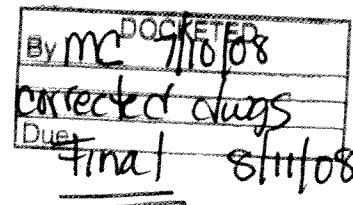 DOCKETED
By MC 7/10/08
corrected dwgs
Due
Final 8/11/08